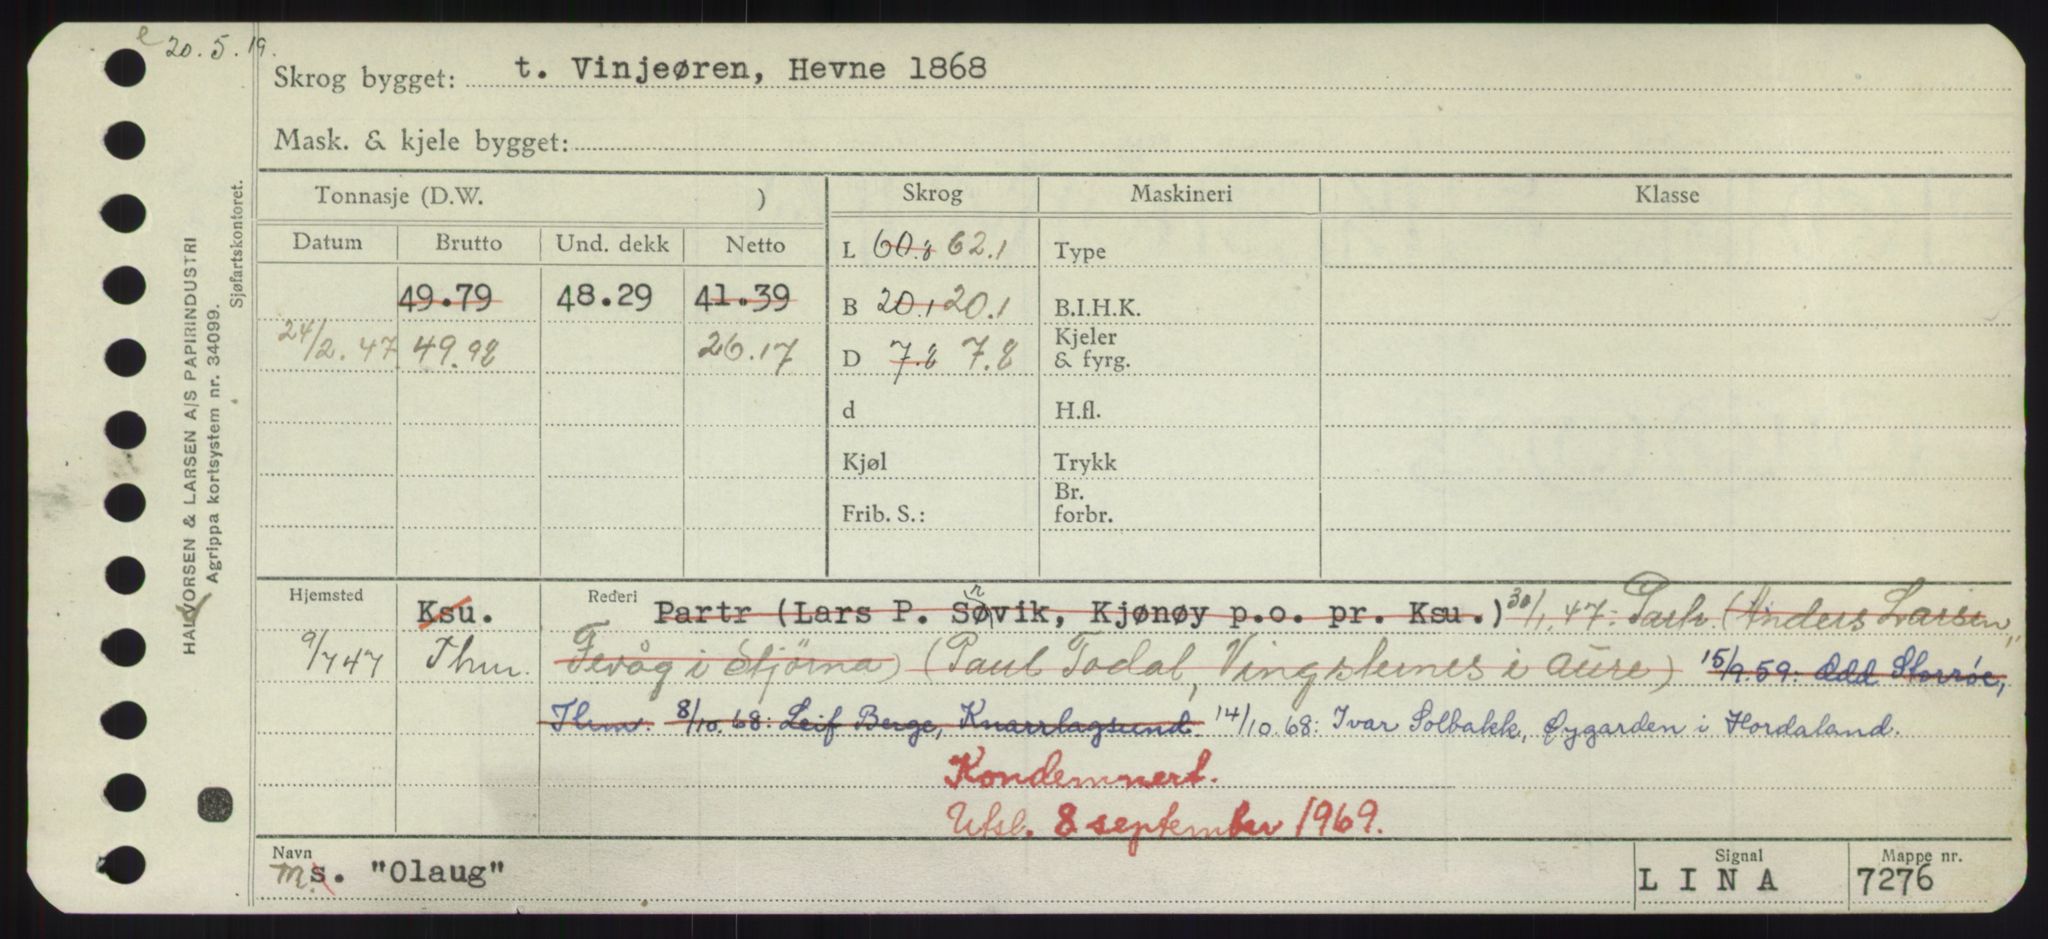 20.5.19.
Skrog bygget: t. Vinjeøren, Hevne 1868
Mask. & kjele bygget:
HALVORSEN & LARSEN A/S PAPIRINDUSTRI
Agrippa kortsystem nr. 34099.
Sjøfartskontoret.
Tonnasje (D.W. ) Skrog Maskineri Klasse
Datum Brutto Und. dekk Netto
L 60.8 62.1 Type
49.79 48.29 41.39 B 20.1 20.1 B.I.H.K.
24/2.47 49.98 26.17 D 7.8 7.8 Kjeler & fyrg.
d H.fl.
Kjøl Trykk
Frib. S.: Br. forbr.
Hjemsted Ksu. Rederi Partr (Lars P. Sønvik, Kjønøy p.o. pr. Ksu.) 30/1.47: Partr. (Anders Larsen,
9/7 47 Thm. Fevåg i Stjörna) (Paul Todal, Vingsternes i Aure) 15/9.59: Odd Storrøe,
Thm. 8/10.68: Leif Berge, Knarrlagsund. 14/10.68: Ivar Solbakk, Øygarden i Hordaland.
Kondemnert.
Utsl. 8 september 1969.
Navn ms. "Olaug" Signal LINA Mappe nr. 7276